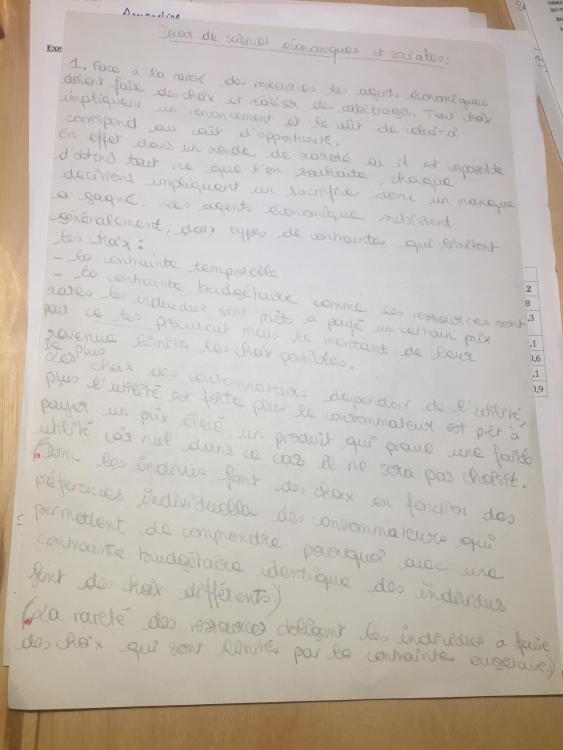 Devoir de sciences économiques et sociales:
1. Face à la rareté des ressources les agents économiques
doivent faire des choix et réaliser des arbitrages. Tout choix
impliquent un renoncement et le coût de celui-ci
correspond au coût d'opportunité.
En effet dans un monde de rareté où il est impossible
d'obtenir tout ce que l'on souhaite, chaque
decisions impliquent un sacrifice donc un manque
a gagné. Les agents économique subissent
généralement, deux types de contraintes qui limitent
les choix:
- la contrainte temporelle
- la contrainte budgétaire comme ces ressources sont
rares les individus sont prêts a payé un certain prix
pour ce les procurait mais le montant de leur
revenue limite les choix possibles.
De plus
Les choix des consommateurs dependent de l'utilité,
plus l'utilité est forte plus le consommateur est prêt à
payer un prix élevé, un produit qui a une faible
utilité nul dans ce cas il ne sera pas choisit.
Donc les indivus font des choix en fonction des
préférences individuelles des consommateurs qui
permettent de comprendre pourquoi avec une
contrainte budgétaire identique des individus
font des choix différents)
(La rareté des ressources obligent les individus à faire
des choix qui sont limités par la contrainte budgétaire.)
Exe
,2
8
,3
,1
0,6
,1
0,9